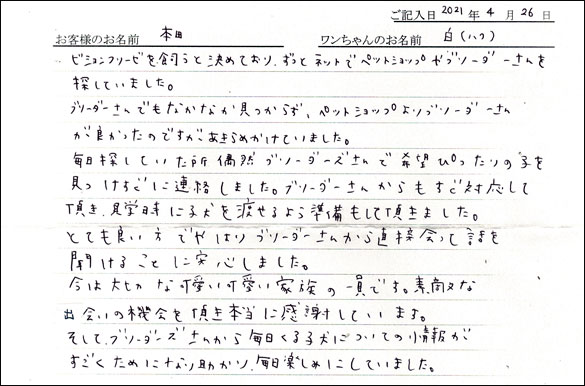 ご記入日 2021年 4月 26日
お客様のお名前 本田 ワンちゃんのお名前 白(ハク)
ビションフリーゼを飼うと決めており、ずっとネットでペットショップやブリーダーさんを
探していました。
ブリーダーさんでもなかなか見つからず、ペットショップよりブリーダーさん
が良かったのですがあきらめかけていました。
毎日探していた所偶然ブリーダーズさんで希望ぴったりの子を
見つけすぐに連絡しました。ブリーダーさんからもすぐ対応して
頂き、見学時に子犬を渡せるよう準備もして頂きました。
とても良い方でやはりブリーダーさんから直接会って話を
聞けることに安心しました。
今は大切な可愛い可愛い家族の一員です。素敵な
出会いの機会を頂き本当に感謝しています。
そして、ブリーダーズさんから毎日くる子犬についての情報が
すごくためになり助かり、毎日楽しみにしていました。